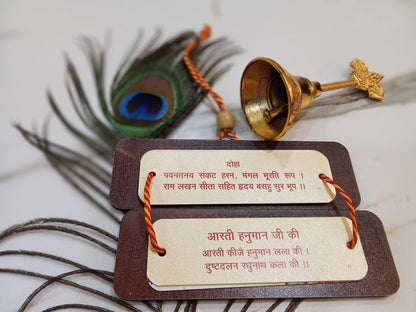 दोहा
पवनतनय संकट हरन, मंगल मूरति रूप ।
राम लखन सीता सहित हृदय बसहु सुर भूप ।।
आरती हनुमान जी की
आरती कीजै हनुमान लला की ।
दुष्टदलन रघुनाथ कला की ।।